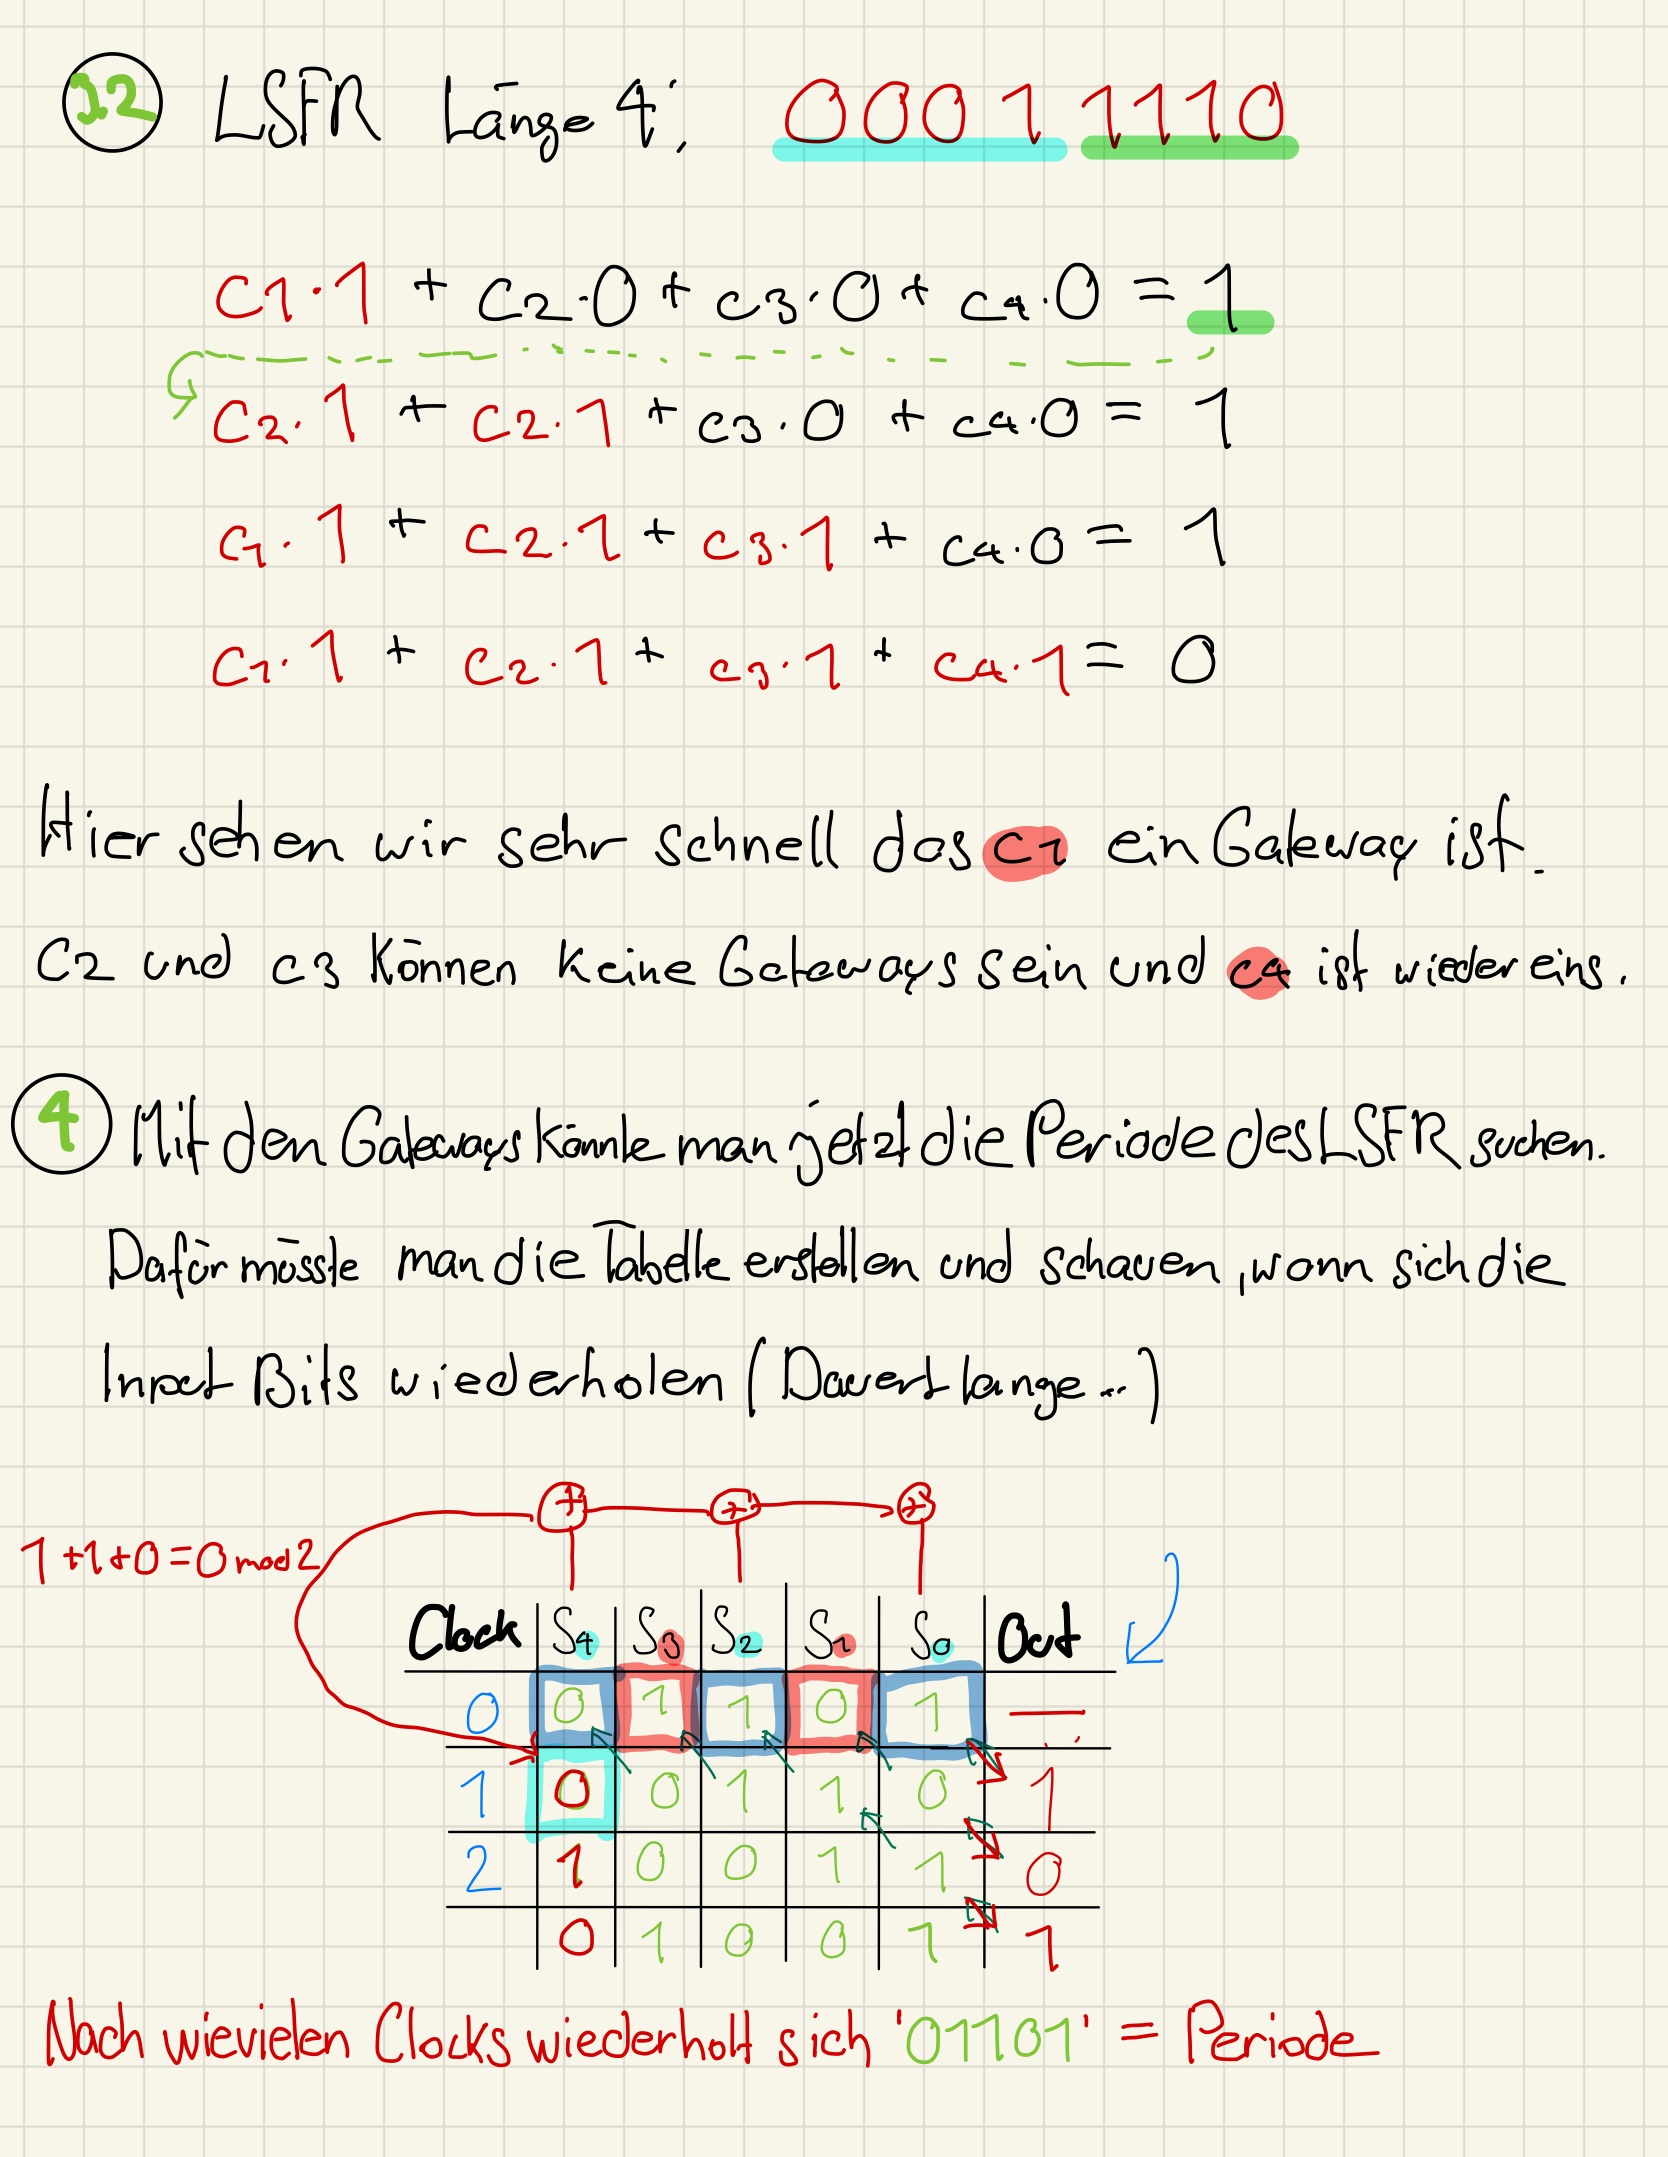 32 LSFR Länge 4: 0001 1110
c1·1 + c2·0 + c3·0 + c4·0 = 1
c2·1 + c2·1 + c3·0 + c4·0 = 1
c1·1 + c2·1 + c3·1 + c4·0 = 1
c1·1 + c2·1 + c3·1 + c4·1 = 0
Hier sehen wir sehr schnell das c1 ein Gateway ist.
C2 und c3 können keine Gateways sein und c4 ist wieder eins.
4 Mit den Gateways könnte man jetzt die Periode des LSFR suchen.
Dafür müsste man die Tabelle erstellen und schauen, wann sich die
Input Bits wiederholen (Dauert lange...)
+ + +
1+1+0=0 mod 2
Clock S4 S3 S2 S1 S0 Out
0 0 1 1 0 1 —
1 0 0 1 1 0 1
2 1 0 0 1 1 0
0 1 0 0 1 1
Nach wievielen Clocks wiederholt sich '01101' = Periode